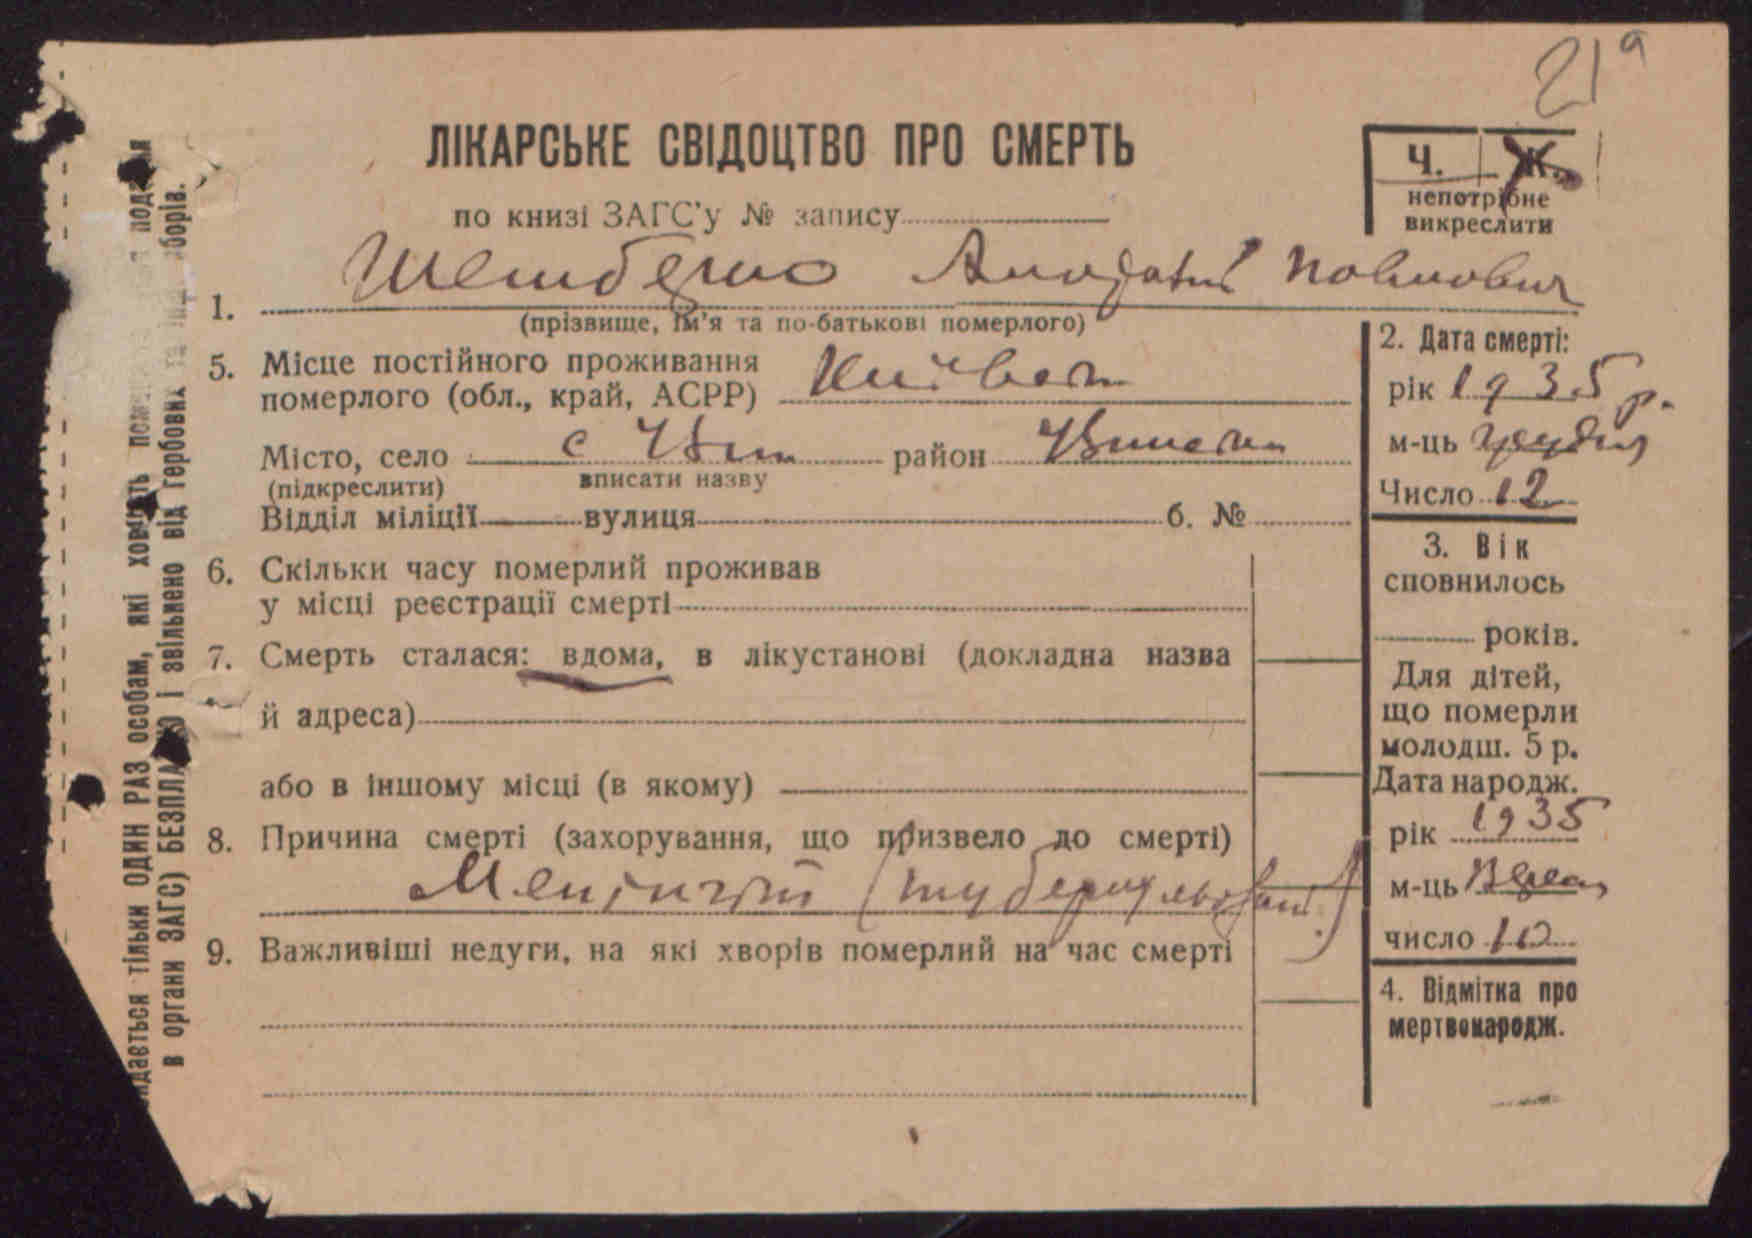 21 а
ЛІКАРСЬКЕ СВІДОЦТВО ПРО СМЕРТЬ
по книзі ЗАГС'у № запису
Ч. Ж.
непотрібне
викреслити
1. Анатолій
(прізвище, ім'я та по-батькові померлого)
5. Місце постійного проживання
померлого (обл., край, АСРР) Київськ
Місто, село с район
(підкреслити) вписати назву
Відділ міліції вулиця б. №
6. Скільки часу померлий проживав
у місці реєстрації смерті
7. Смерть сталася: вдома, в лікустанові (докладна назва
й адреса)
або в іншому місці (в якому)
8. Причина смерті (захорування, що призвело до смерті)
Менінгіт
9. Важливіші недуги, на які хворів померлий на час смерті
2. Дата смерті:
рік 1935 р.
м-ць грудня
Число 12
3. Вік
сповнилось
років.
Для дітей,
що померли
молодш. 5 р.
Дата народж.
рік 1935
м-ць
число 10
4. Відмітка про
мертвонародж.
тільки ОДИН РАЗ особам, які
в органи ЗАГС) і звільнено від гербових та зборів.